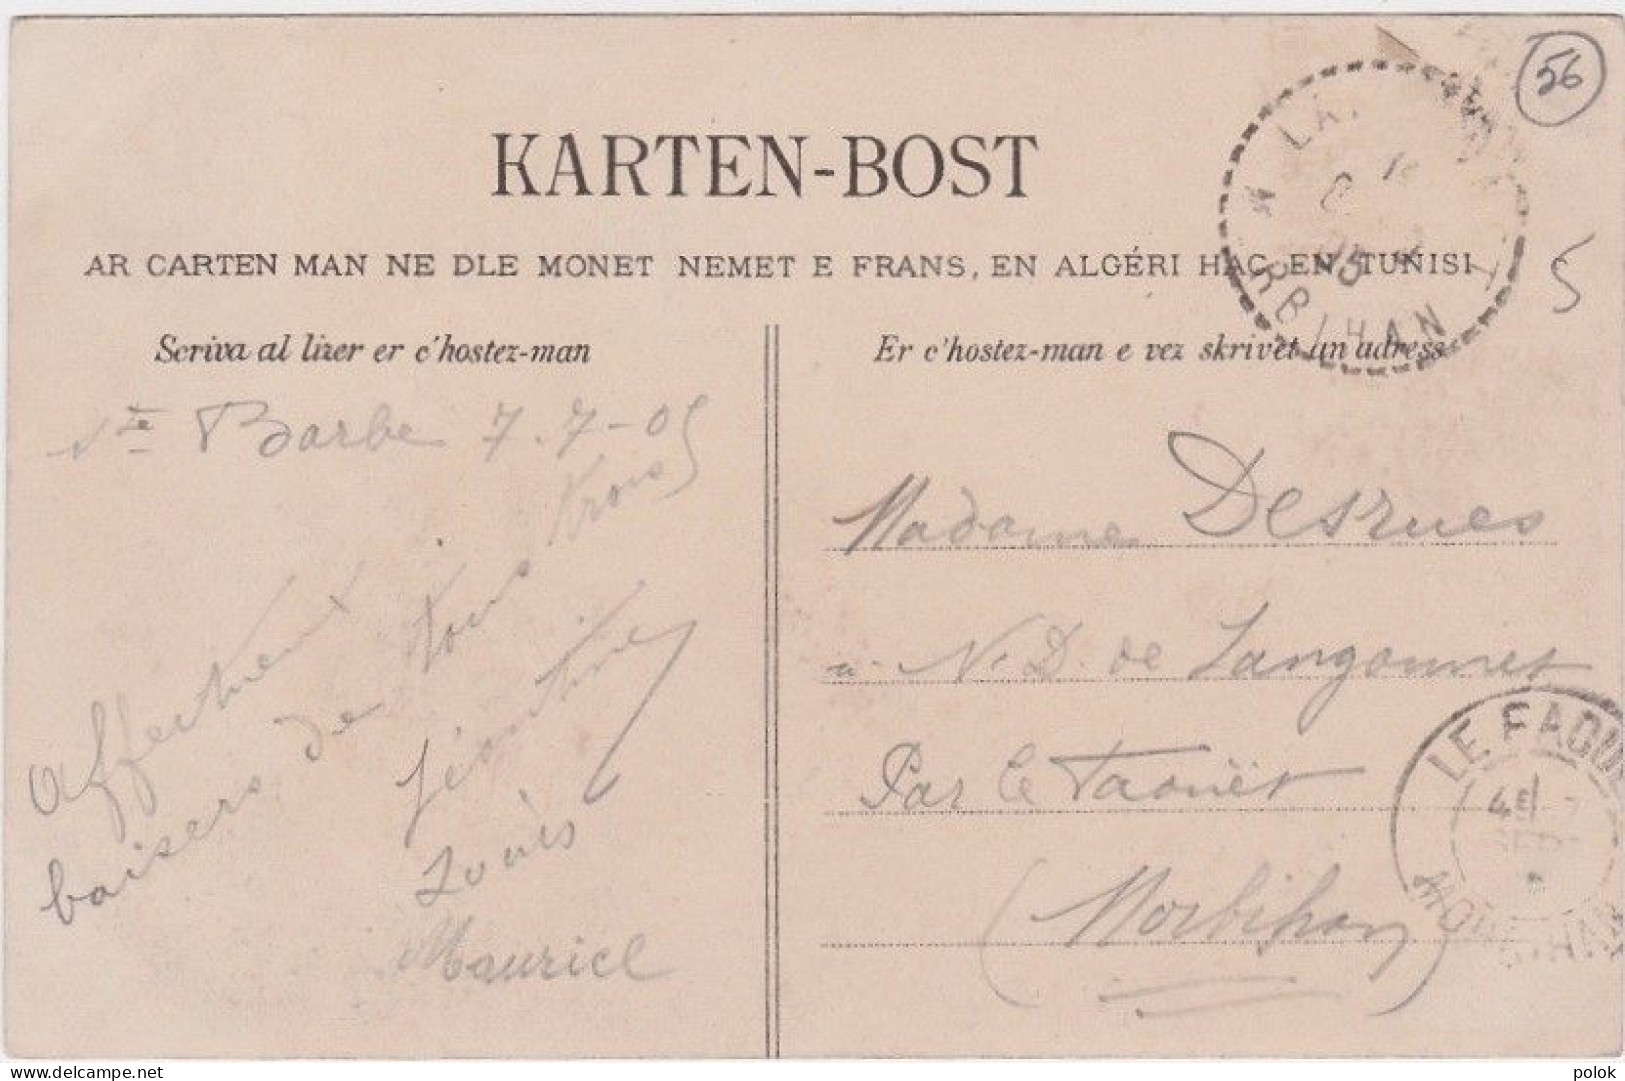 56
KARTEN-BOST
AR CARTEN MAN NE DLE MONET NEMET E FRANS, EN ALGÉRI HAC EN TUNISI
5
Scriva al lizer er c'hostez-man
Er c'hostez-man e vez skrivet an adress
Ste Barbe 7.7-05
Affectueux
baisers de tous trois
Maurice
Madame Desrues
à N.D. de Langonnet
Par le Faouët
(Morbihan)
LE FAOU
4E
polok